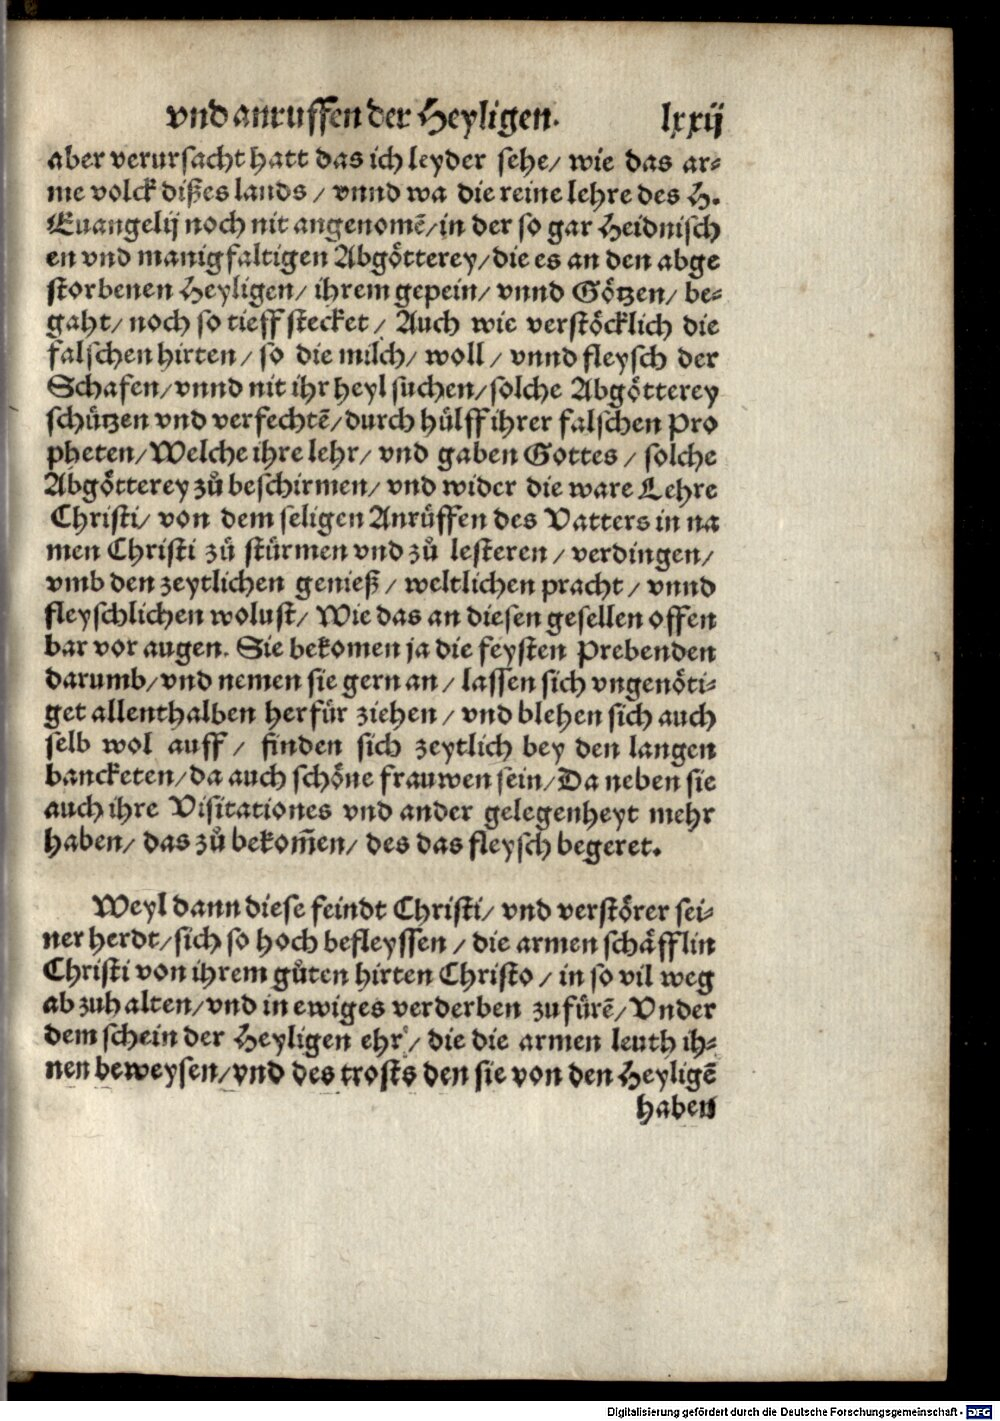 vnd anruffen der Heyligen. lxxij
aber verursacht hatt das ich leyder sehe/ wie das ar-
me volck dißes lands / vnnd wa die reine lehre des H.
Euangelij noch nit angenomẽ/in der so gar Heidnisch
en vnd manigfaltigen Abgötterey/die es an den abge
storbenen Heyligen/ ihrem gepein/ vnnd Götzen/ be-
gaht/ noch so tieff stecket / Auch wie verstöcklich die
falschen hirten/ so die milch/ woll / vnnd fleysch der
Schafen/vnnd nit ihr heyl suchen/solche Abgötterey
schützen vnd verfechtẽ/durch hülff ihrer falschen Pro
pheten/Welche ihre lehr/ vnd gaben Gottes / solche
Abgötterey zů beschirmen/ vnd wider die ware Lehre
Christi/ von dem seligen Anrüffen des Vatters in na
men Christi zů stürmen vnd zů lesteren / verdingen/
vmb den zeytlichen genieß / weltlichen pracht / vnnd
fleyschlichen wolust/ Wie das an diesen gesellen offen
bar vor augen. Sie bekomen ja die feysten Prebenden
darumb/vnd nemen sie gern an / lassen sich vngenöti-
get allenthalben herfür ziehen / vnd blehen sich auch
selb wol auff / finden sich zeytlich bey den langen
bancketen/da auch schöne frauwen sein/Da neben sie
auch ihre Visitationes vnd ander gelegenheyt mehr
haben/ das zů bekom̃en/ des das fleysch begeret.
Weyl dann diese feindt Christi/ vnd verstörer sei-
ner herdt/sich so hoch befleyssen / die armen schäfflin
Christi von ihrem gůten hirten Christo / in so vil weg
ab zuhalten/vnd in ewiges verderben zu fürẽ/ Vnder
dem schein der Heyligen ehr / die die armen leuth ih-
nen beweysen/vnd des trosts den sie von den Heyligẽ
haben
Digitalisierung gefördert durch die Deutsche Forschungsgemeinschaft - DFG